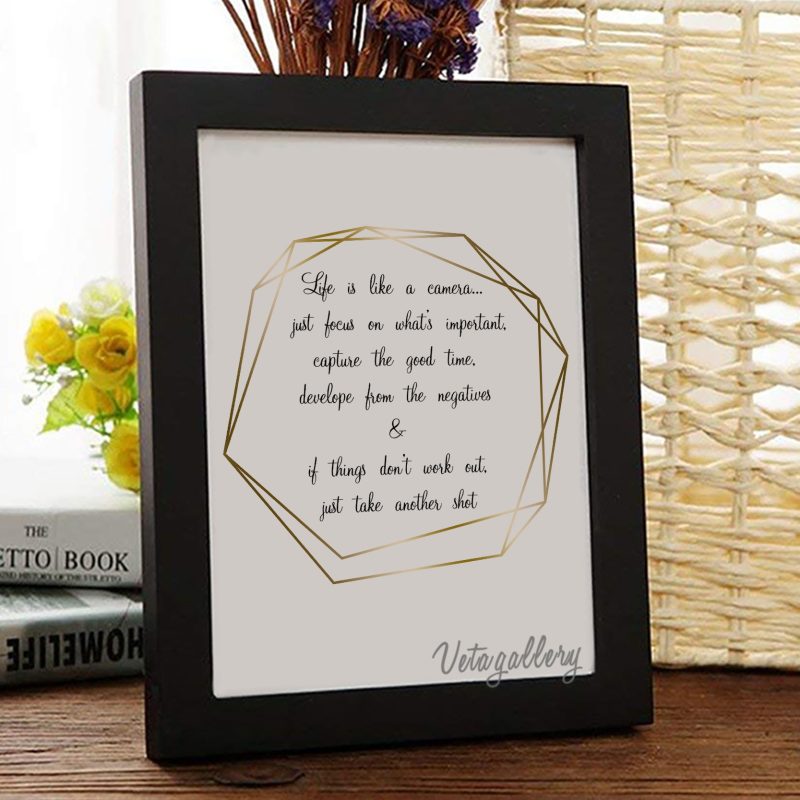 Life is like a camera...
just focus on what's important,
capture the good time,
develope from the negatives
&
if things don't work out,
just take another shot
Vetagallery
THE
ETTO BOOK
HISTORY OF THE STILETTO
HOMELIFE